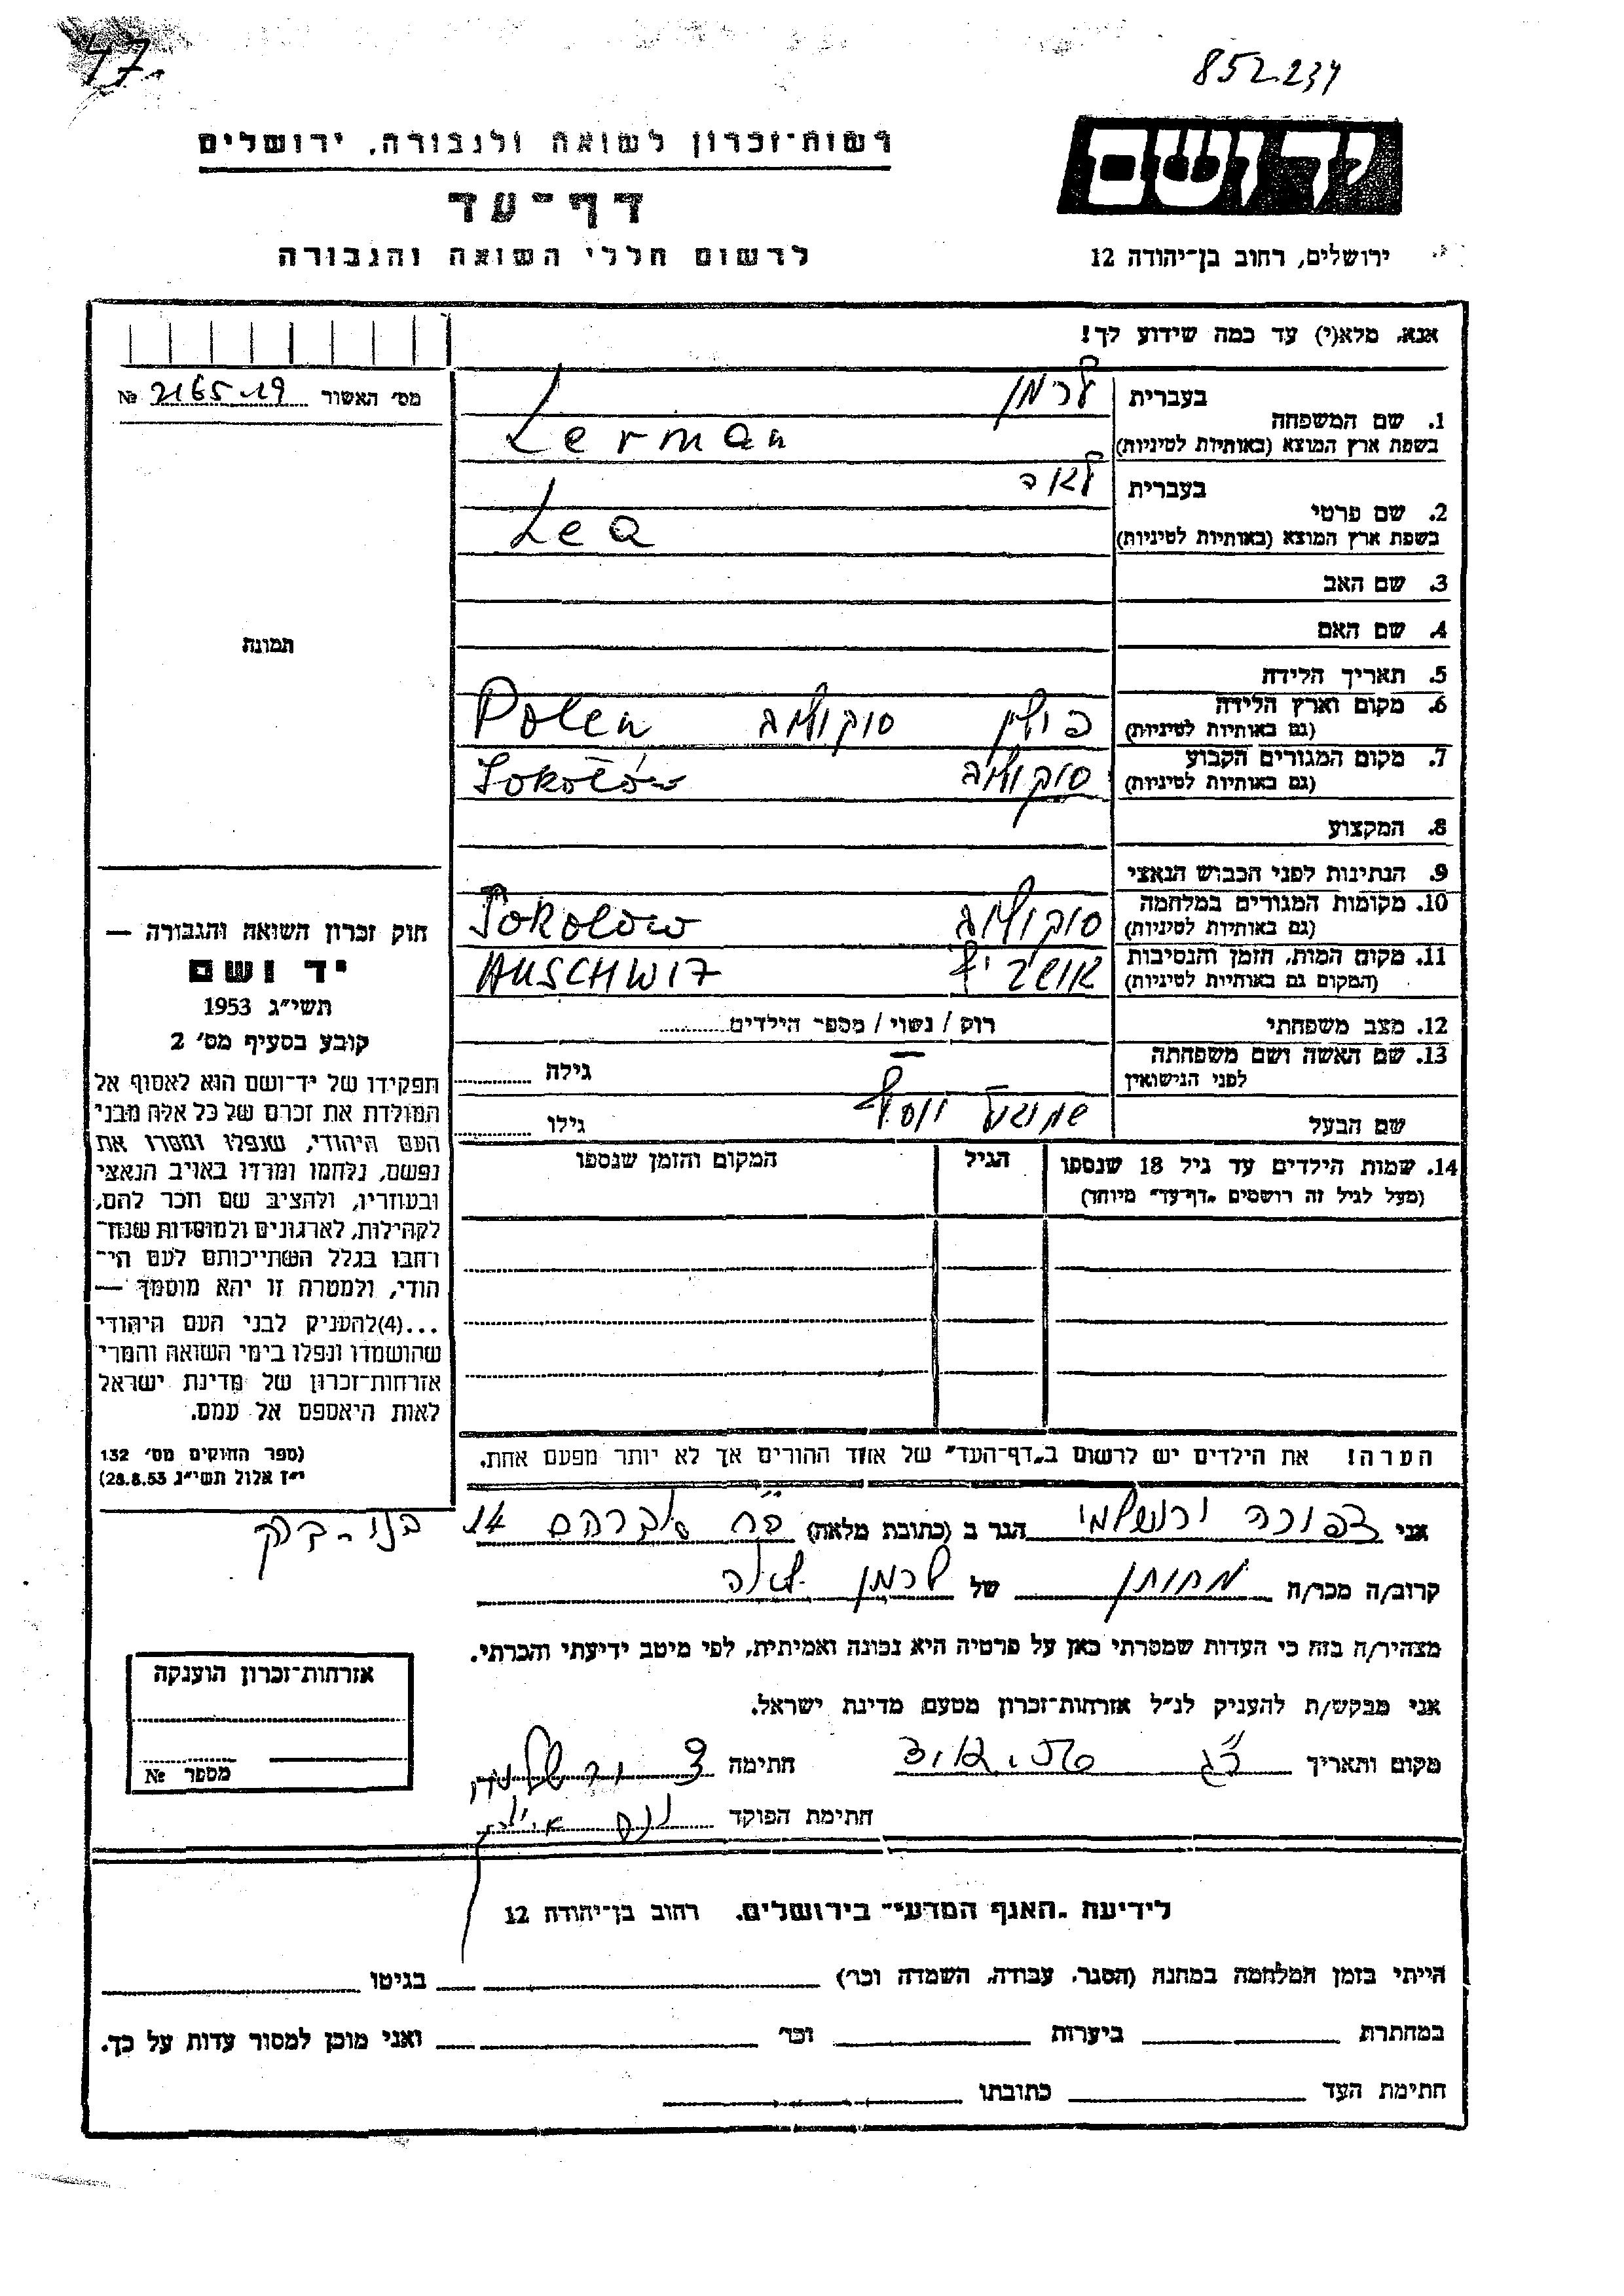 47
852234
רשות־זכרון לשואה ולגבורה, ירושלים
יד ושם
דף־עד
לרשום חללי השואה והגבורה
ירושלים, רחוב בן־יהודה 12
אנא, מלא(י) עד כמה שידוע לך!
מס׳ האשור 2165-19 №
בעברית לרמן
1. שם המשפחה
בשפת ארץ המוצא (באותיות לטיניות) Lerman
בעברית לאה
2. שם פרטי
בשפת ארץ המוצא (באותיות לטיניות) Lea
3. שם האב
4. שם האם
תמונה
5. תאריך הלידה
6. מקום וארץ הלידה
(גם באותיות לטיניות) פולין סוקולוב Polen
7. מקום המגורים הקבוע
(גם באותיות לטיניות) סוקולוב Sokołów
8. המקצוע
9. הנתינות לפני הכבוש הנאצי
10. מקומות המגורים במלחמה
(גם באותיות לטיניות) סוקולוב Sokolow
11. מקום המות, הזמן והנסיבות
(המקום גם באותיות לטיניות) אושביץ AUSCHWITZ
12. מצב משפחתי רוק / נשוי / מספר הילדים
13. שם האשה ושם משפחתה
לפני הנישואין גילה
שם הבעל יוסף גילו
14. שמות הילדים עד גיל 18 שנספו הגיל המקום והזמן שנספו
(מעל לגיל זה רושמים „דף־עד” מיוחד)
חוק זכרון השואה והגבורה —
יד ושם
תשי״ג 1953
קובע בסעיף מס׳ 2
תפקידו של יד־ושם הוא לאסוף אל
המולדת את זכרם של כל אלה מבני
העם היהודי, שנפלו ומסרו את
נפשם, נלחמו ומרדו באויב הנאצי
ובעוזריו, ולהציב שם וזכר להם,
לקהילות, לארגונים ולמוסדות שנח־
רבו בגלל השתייכותם לעם הי־
הודי, ולמטרה זו יהא מוסמך —
...(4)להעניק לבני העם היהודי
שהושמדו ונפלו בימי השואה והמרי
אזרחות־זכרון של מדינת ישראל
לאות היאספם אל עמם.
(ספר החוקים מס׳ 132
י״ז אלול תשי״ג 28.8.53)
הערה! את הילדים יש לרשום ב„דף־העד” של אחד ההורים אך לא יותר מפעם אחת.
אני צפורה ירושלמי הגר ב (כתובת מלאה) אברהם בני-ברק
קרוב/ה מכר/ה מחותן של לרמן לאה
מצהיר/ה בזה כי העדות שמסרתי כאן על פרטיה היא נכונה ואמיתית, לפי מיטב ידיעתי והכרתי.
אני מבקש/ת להעניק לנ״ל אזרחות־זכרון מטעם מדינת ישראל.
מקום ותאריך חתימה צ ירושלמי
חתימת הפוקד
אזרחות־זכרון הוענקה
מספר №
לידיעת „האגף המדעי” בירושלים, רחוב בן־יהודה 12
הייתי בזמן המלחמה במחנה (הסגר, עבודה, השמדה וכר׳) בגיטו
במחתרת ביערות וכר׳ ואני מוכן למסור עדות על כך.
חתימת העד כתובתו